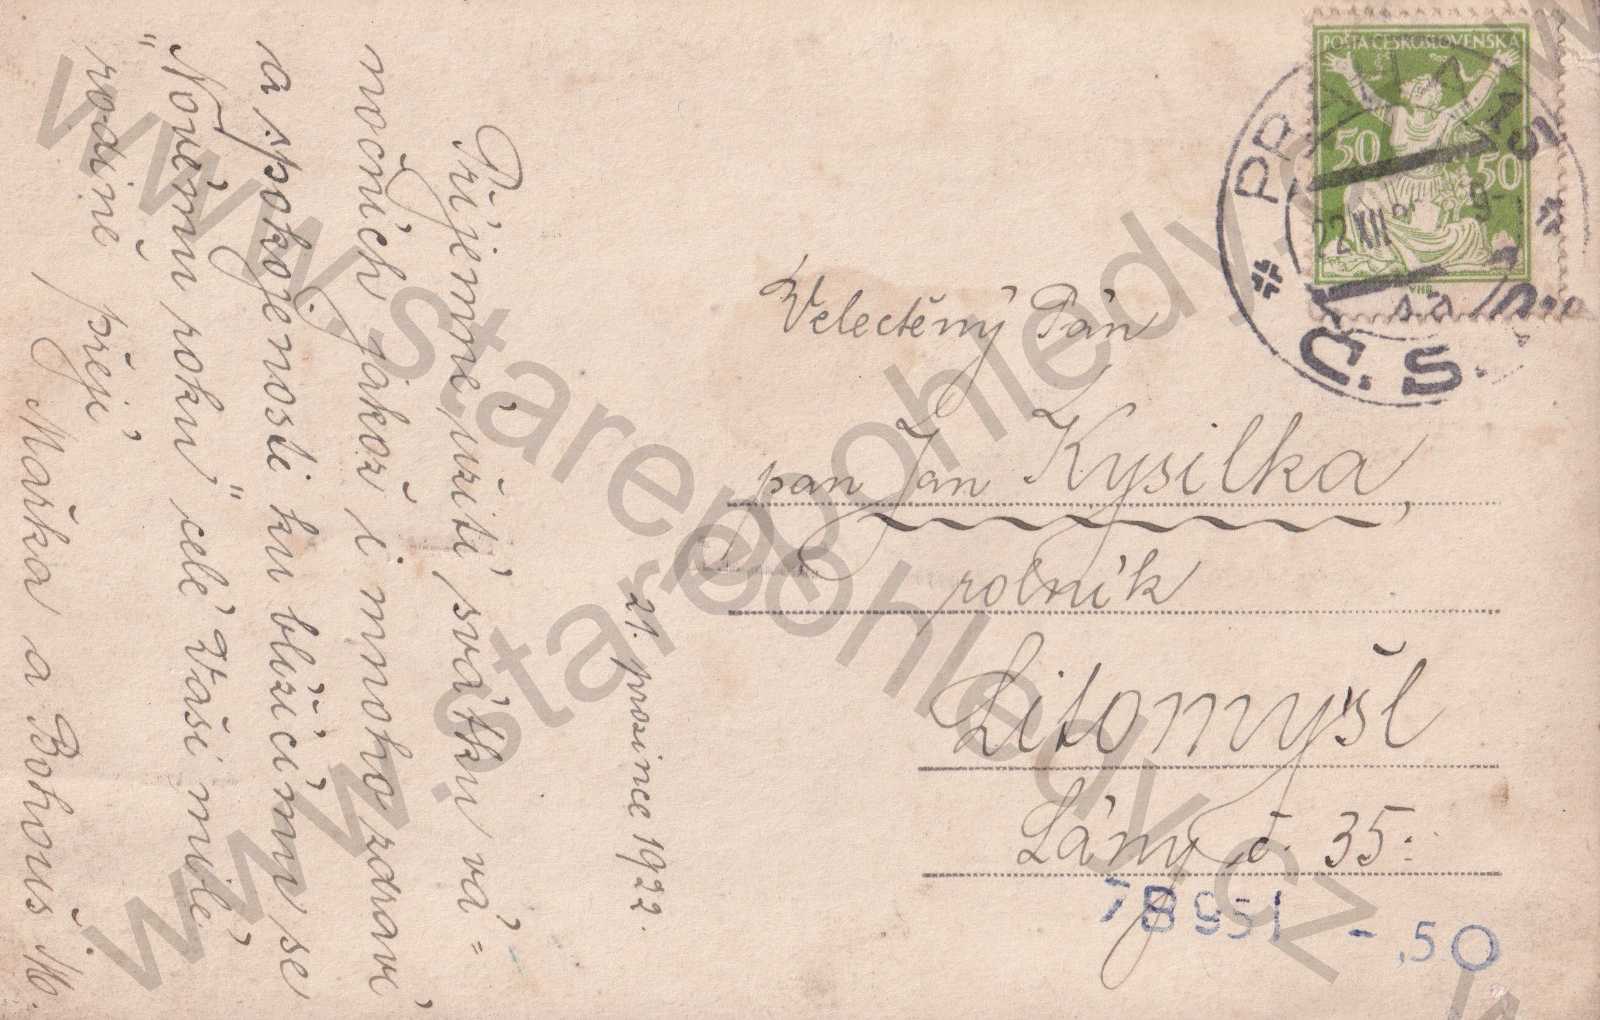 21. prosince 1922.
Příjemné užití svátků vá=
nočních jakož i mnoho zdraví
a spokojenosti ku blížícímu se
"Novému roku" celé Vaší milé
rodině přejí
Mařka a Bohouš M.
POŠTA ČESKOSLOVENSKÁ
50 50
22 XII
Č.S.
Velectěný Pán
pan Jan Kysilka,
rolník
Litomyšl
Lány č. 35.
78951 -,50
www.starepohledy.cz
www.starepohledy.cz